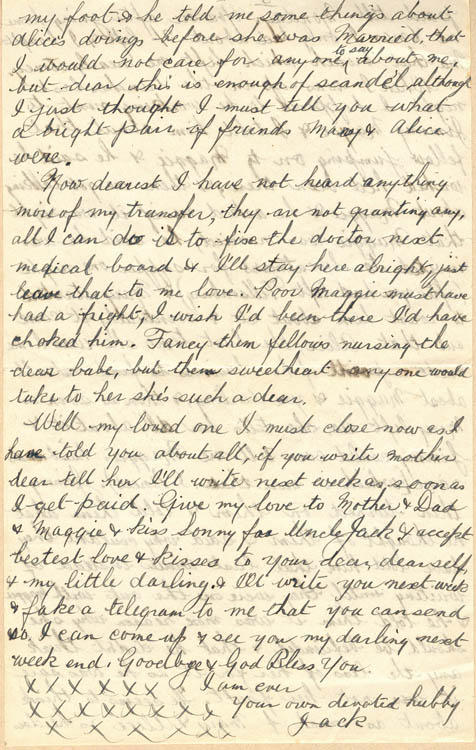 my foot & he told me some things about
Alices doings before she was Married, that
I would not care for anyone to say about me,
but dear this is enough of scandel, although
I just thought I must tell you what
a bright pair of friends Mary & Alice
were.
Now dearest I have not heard anything
more of my transfer, they are not granting any,
all I can do is to fix the doctor next
medical board & I'll stay here alright, just
leave that to me love. Poor Maggie must have
had a fright, I wish I'd been there I'd have
choked him. Fancy them fellows nursing the
dear babe, but then sweetheart any one would
take to her she's such a dear.
Well my loved one I must close now as I
have told you about all, if you write mother
dear tell her I'll write next week as soon as
I get paid. Give my love to Mother & Dad
& Maggie & kiss Sonny for Uncle Jack & accept
bestest love & kisses to your dear, dear self,
& my little darling, & I'll write you next week
& fake a telegram to me that you can send
so I can come up & see you my darling next
week end. Goodbye & God Bless You.
X X X X X X . I am ever
X X X X X X X X Your own devoted hubby
X X X X X X X Jack